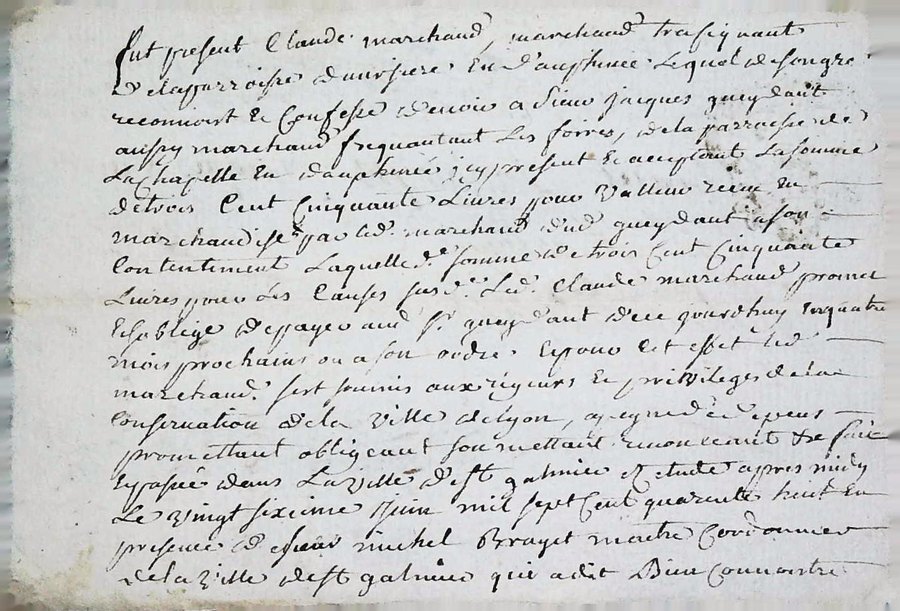 fut present Claude marchand, marchand trafiquant
de la parroisse d'aurssiere En d'auphinee Lequel de son gre
reconnoist Et Confesse devoir a Sieur jacques gueydant
aussy marchand frequantant Les foires, de la parroisse de
La Chapelle En dauphinée jcy present Et acceptant La somme
de trois Cent Cinquante Livres pour Valleur receu En
marchandise par led. marchand dud. gueydant a son
Contentement Laquelle de. somme de trois Cent Cinquante
Livres pour Les Causes susd. Led. Claude marchand promet
Et soblige de ppayer aud. Sr. gueydant dece jourdhuy En quatre
mois prochains ou a son ordre. Et pour Cet effet led.
marchand. sest soumis aux rigeurs Et privileges de la
Conservation de la Ville de Lyon, a peyne de depens
promettant obligeant soumettant renonceant &c fait
Et passée dans La Ville de St galmier Et Etude apres midy
Le vingt sixieme juin mil sept Cent quarente huit En
presence de sieur michel Brayet maitre Cordonnier
de la Ville de St galmier qui a dit Bien Connoistre